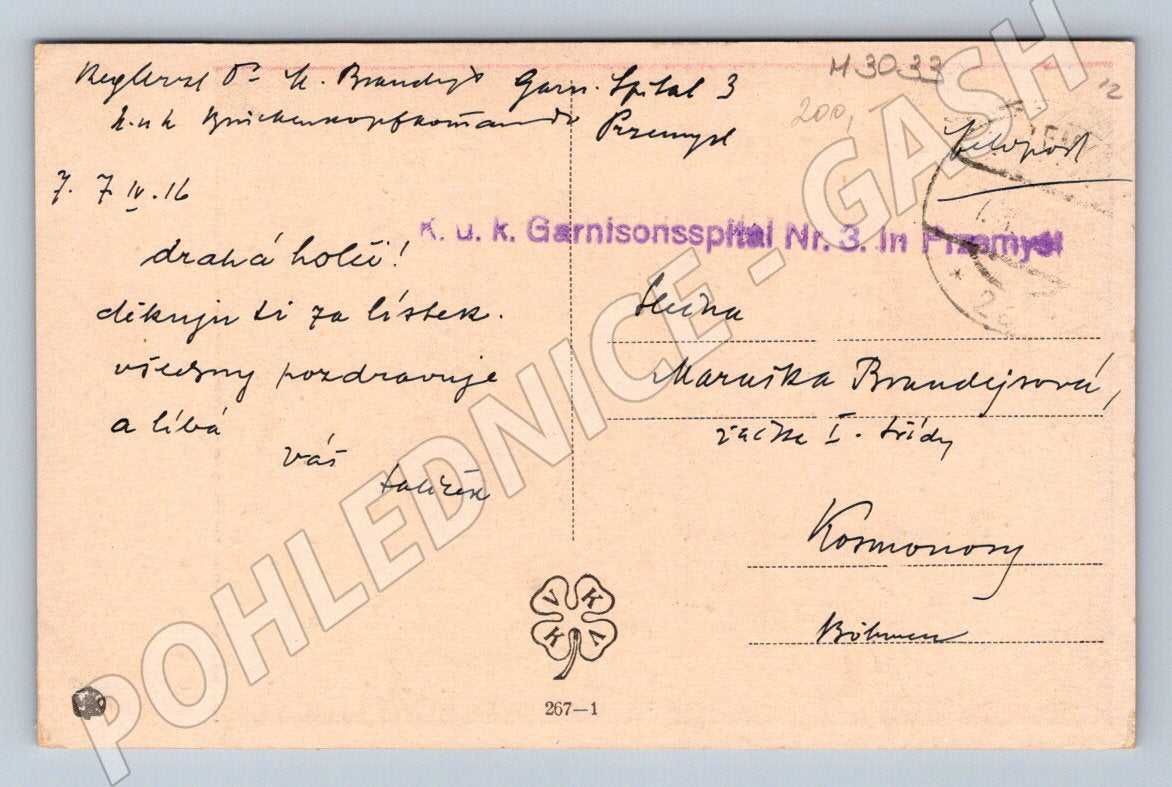 Dr. K. Brandejs Garn. Spital 3
k.u.k Brückenkopfkommando Przemysl
7. IV. 16
drahá holči!
děkuju ti za lístek.
všecky pozdravuje
a líbá
váš
tatíček
M 3033
200,
12
Feldpost
K. u. k. Garnisonsspital Nr. 3. in Przemyśl
Slečna
Maruška Brandejsová,
žačka I. třídy
Kosmonosy
Böhmen
V K K V
267—1
POHLEDNICE - GASH